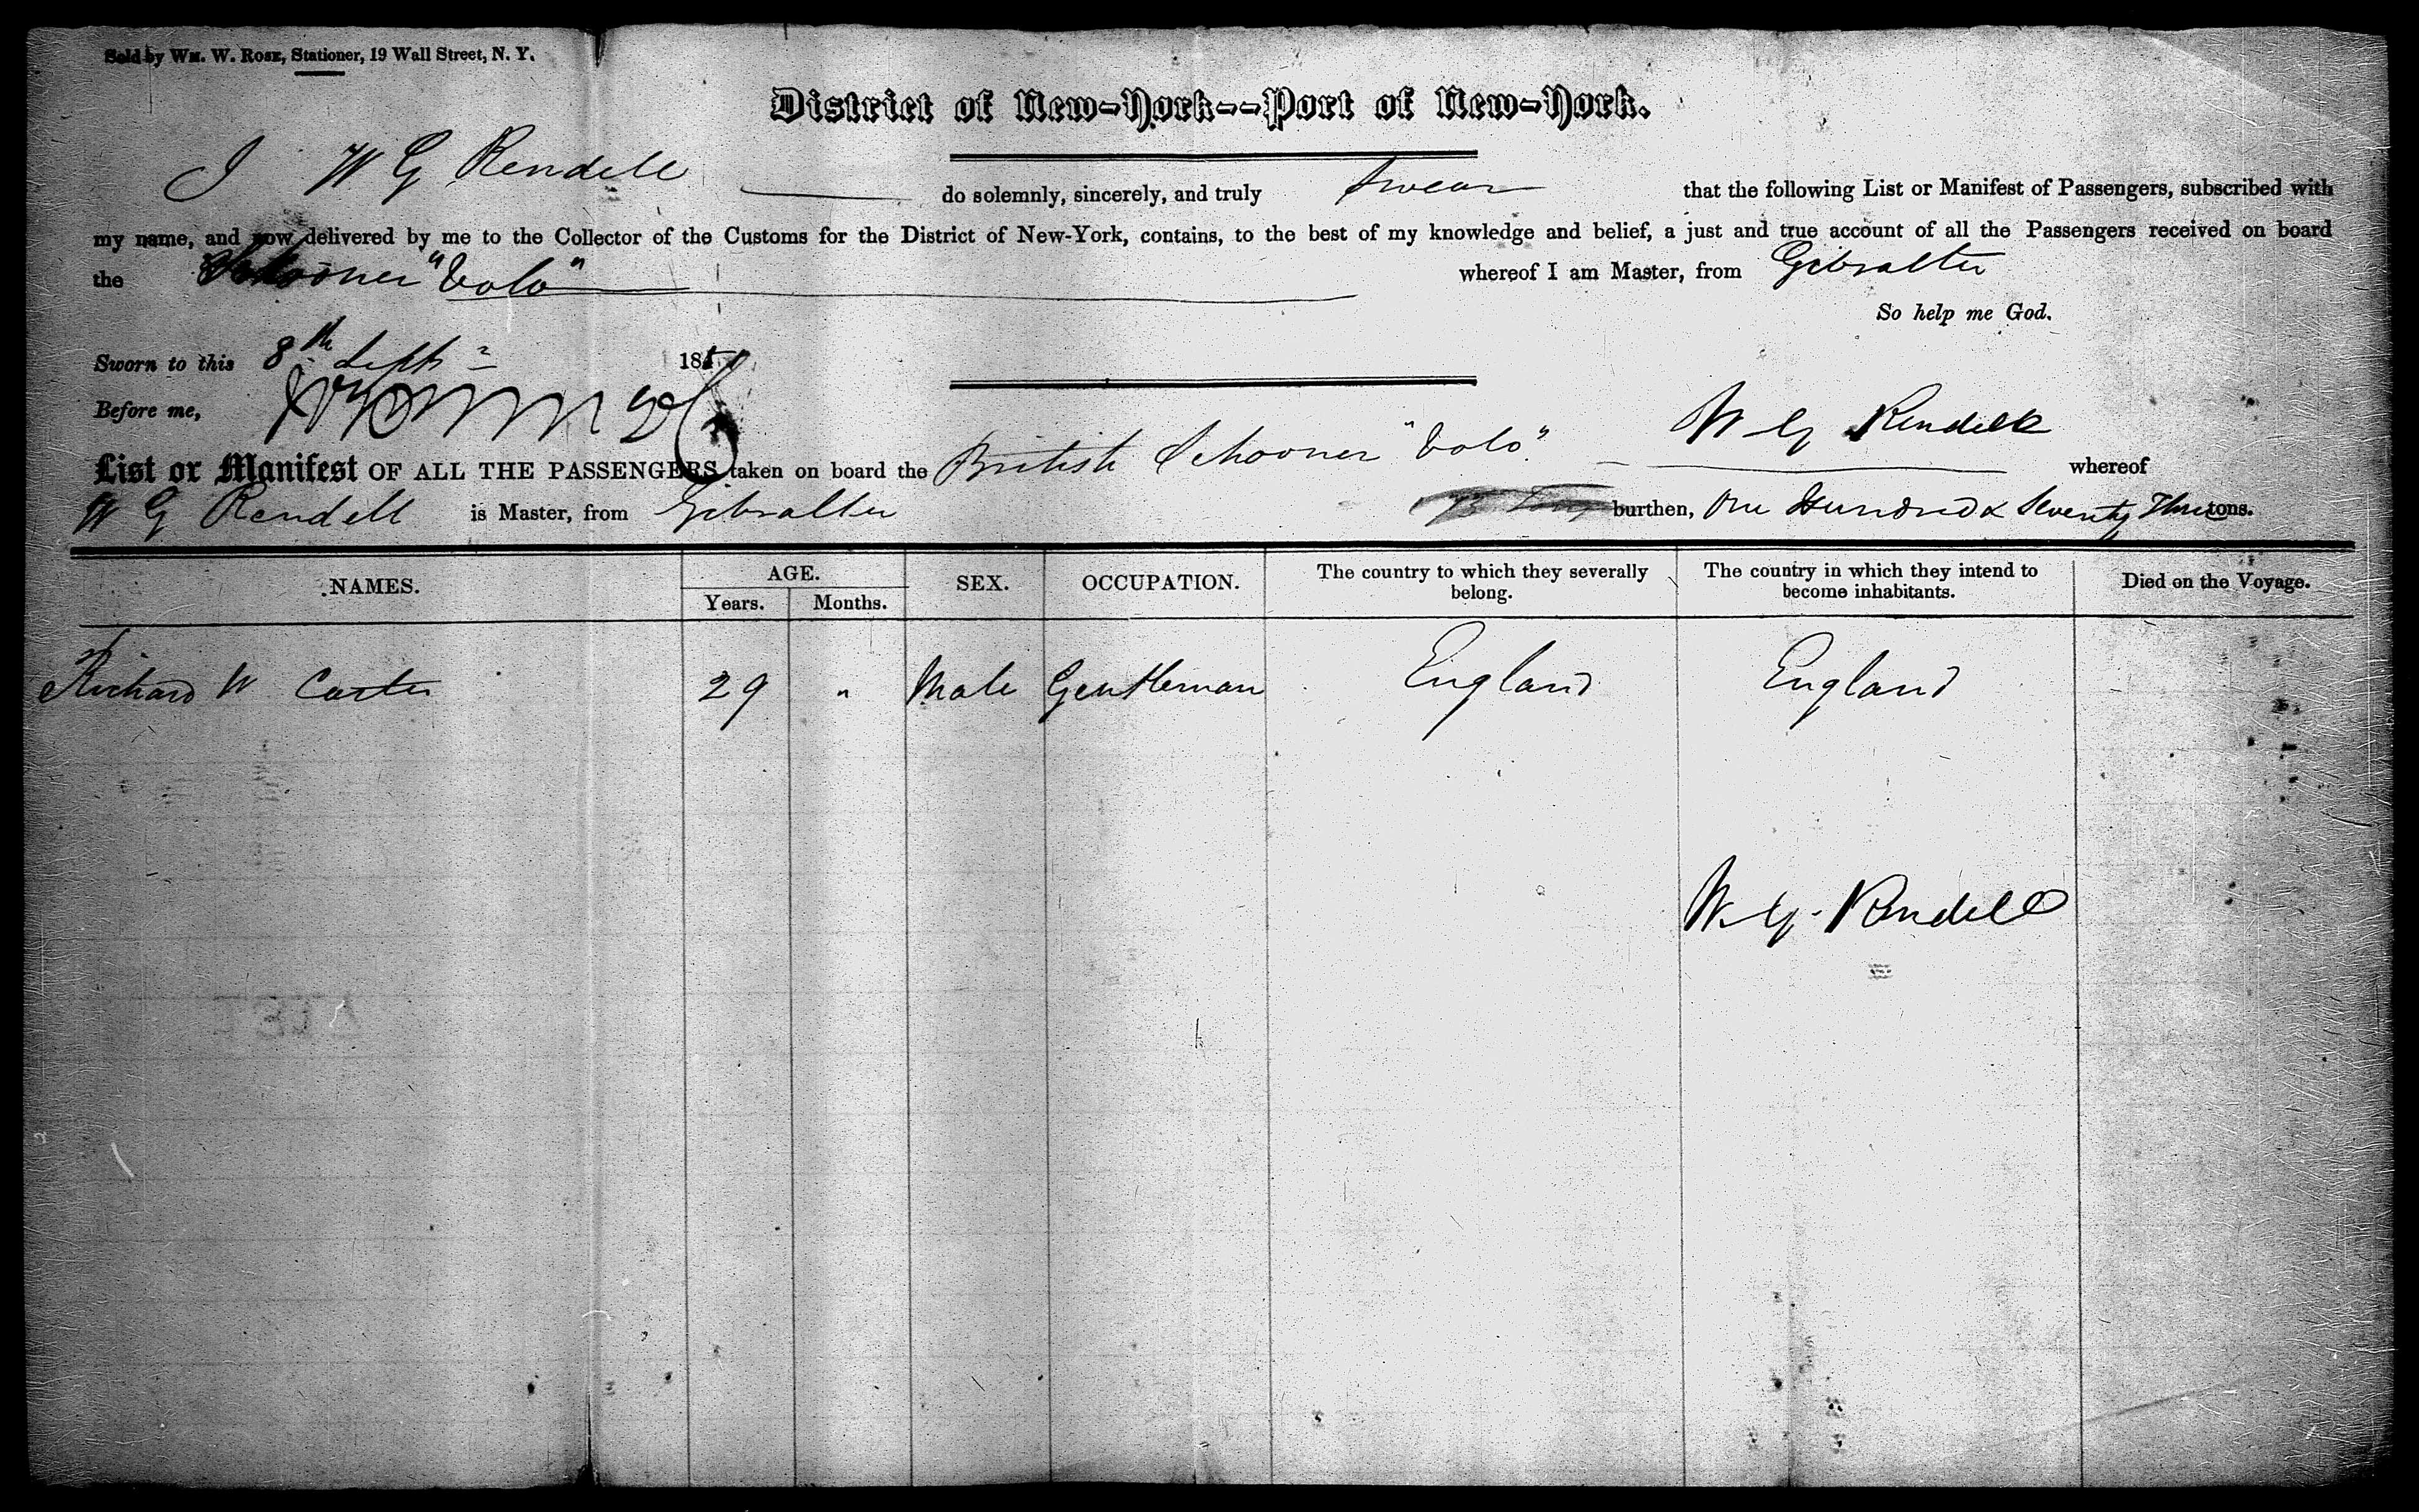 Sold by Wm. W. Rose, Stationer, 19 Wall Street, N. Y.
District of New-York--Port of New-York.
I W G Rendell do solemnly, sincerely, and truly swear that the following List or Manifest of Passengers, subscribed with
my name, and now delivered by me to the Collector of the Customs for the District of New-York, contains, to the best of my knowledge and belief, a just and true account of all the Passengers received on board
the Schooner "Volo" whereof I am Master, from Gibralter
So help me God.
Sworn to this 8th Sept 185
Before me,
W G Rendell
List or Manifest OF ALL THE PASSENGERS taken on board the British Schooner "Volo" whereof
W G Rendell is Master, from Gibralter burthen, One Hundred & Seventy Three tons.
NAMES. AGE. SEX. OCCUPATION. The country to which they severally belong. The country in which they intend to become inhabitants. Died on the Voyage.
Years. Months.
Richard W Carter 29 " Male Gentleman England England
W. G. Rendell